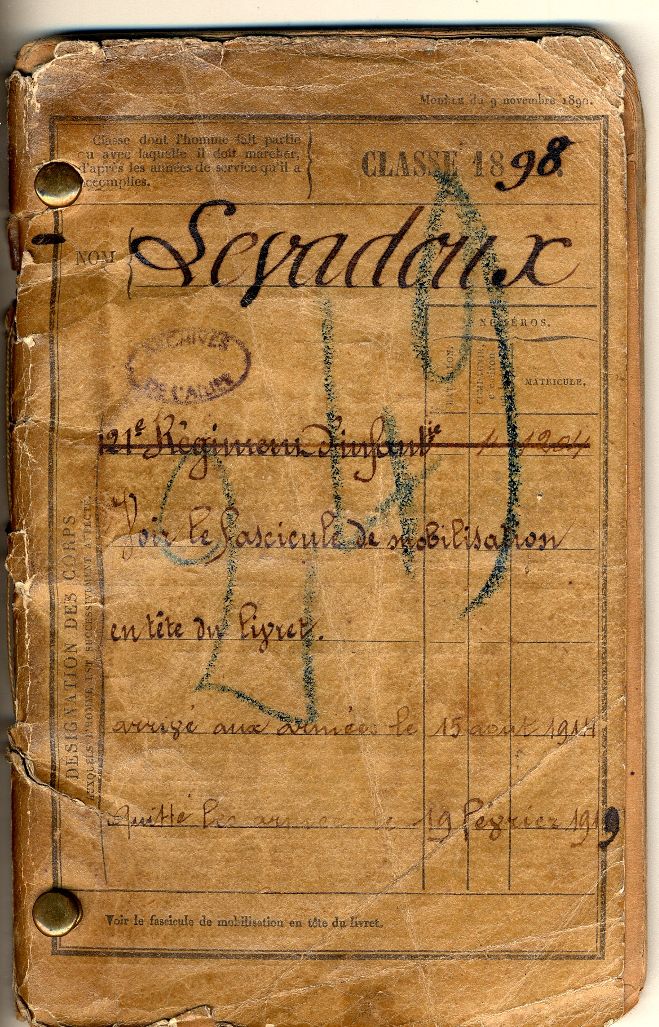 Modèle du 9 novembre 1890.
Classe dont l'homme fait partie
ou avec laquelle il doit marcher,
d'après les années de service qu'il a
accomplies.
CLASSE 1898.
NOM
Levadoux
NUMÉROS.
MATRICULE.
ARCHIVES
DE L'AUDE
DÉSIGNATION DES CORPS
AUXQUELS L'HOMME EST SUCCESSIVEMENT AFFECTÉ.
121e Régiment d'infantie 1204
Voir le fascicule de mobilisation
en tête du livret.
arrivé aux armées le 15 août 1914
Quitté les armées le 19 février 1919
Voir le fascicule de mobilisation en tête du livret.
249